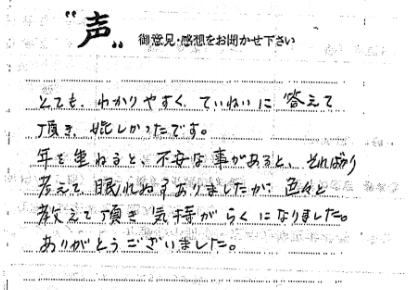 "声"
御意見・感想をお聞かせ下さい
とても、わかりやすく ていねいに 答えて
頂き、嬉しかったです。
年を重ねると、不安な事があると、そればかり
考えて 眠れねずありましたが、色々と
教えて頂き 気持がらくになりました。
ありがとうございました。